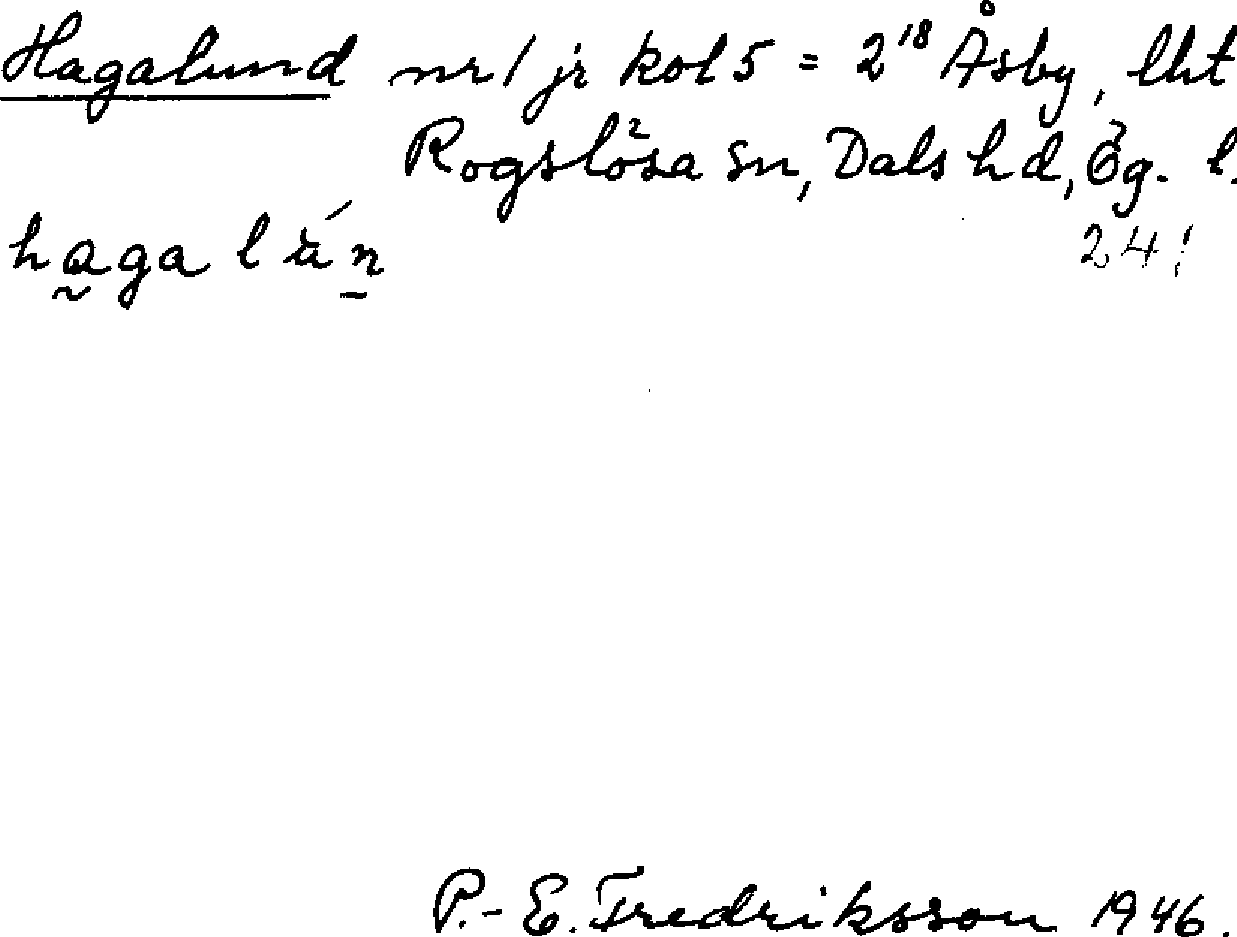 Hagalund nr 1 jr kol 5 = 2¹⁸ Åsby, lht
Rogslösa sn, Dals hd, Ög. l.
24!
P.-E. Fredriksson 1946.